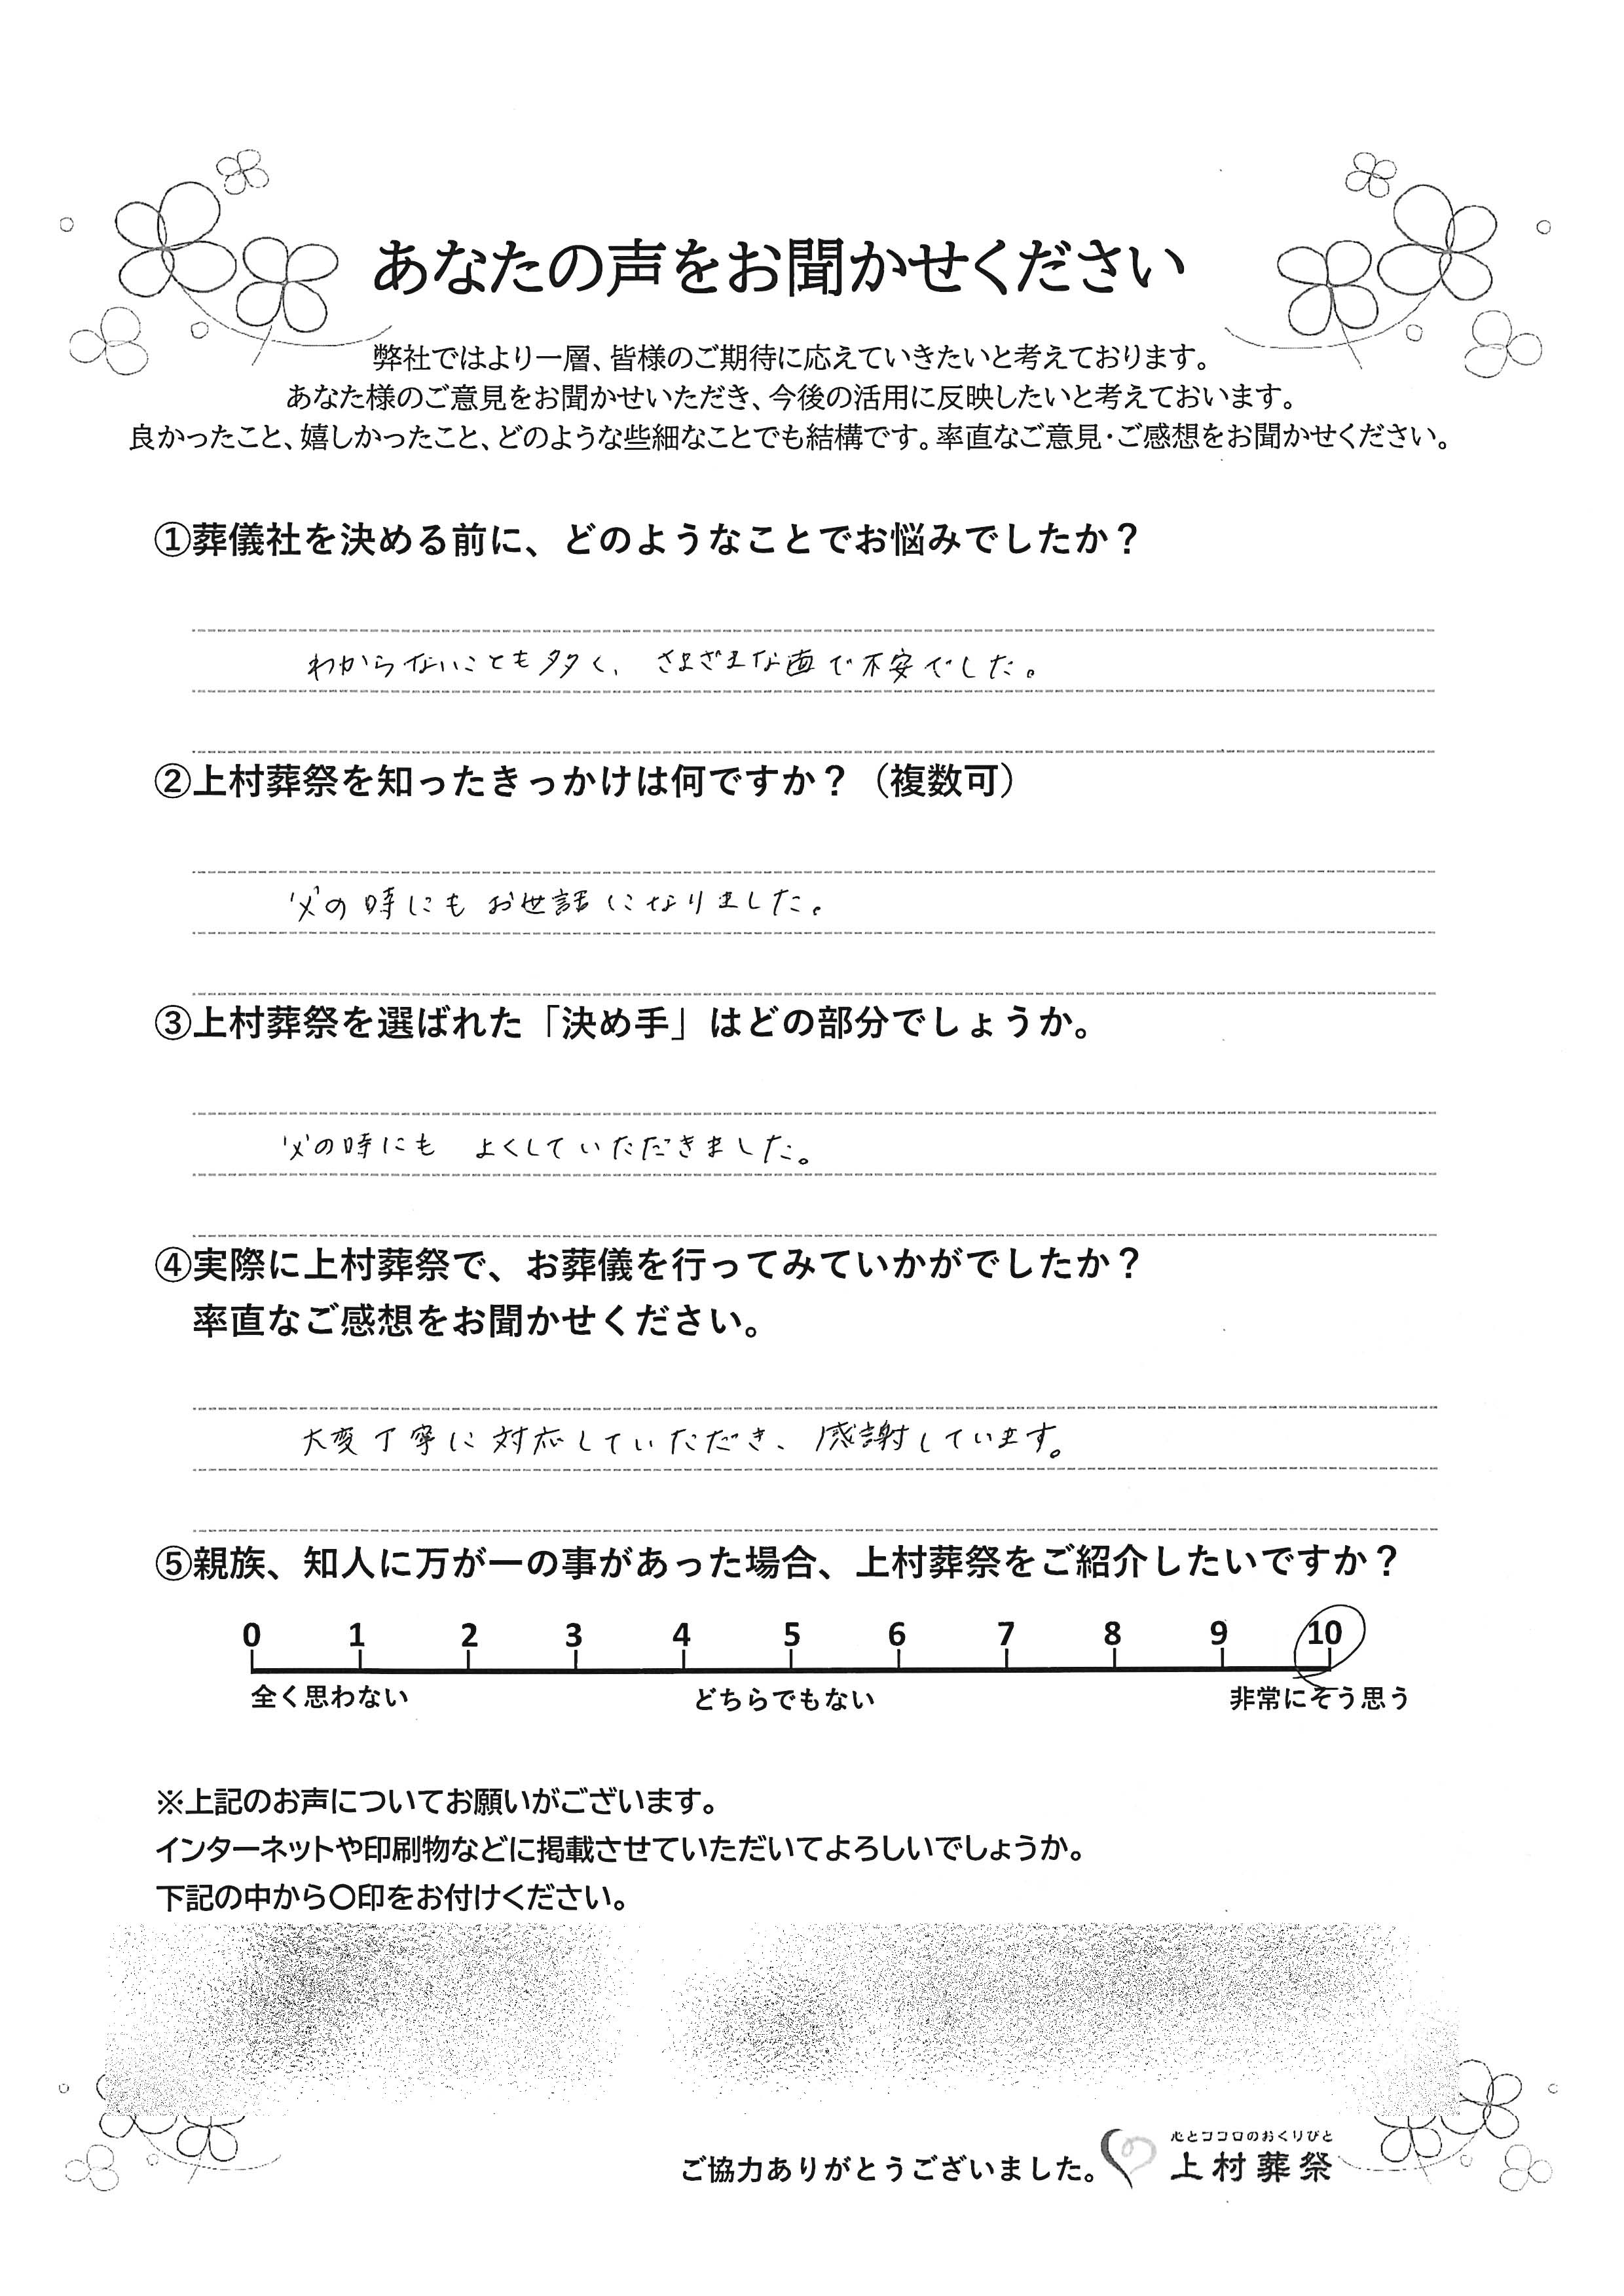 あなたの声をお聞かせください
弊社ではより一層、皆様のご期待に応えていきたいと考えております。
あなた様のご意見をお聞かせいただき、今後の活用に反映したいと考えておいます。
良かったこと、嬉しかったこと、どのような些細なことでも結構です。率直なご意見・ご感想をお聞かせください。
①葬儀社を決める前に、どのようなことでお悩みでしたか？
わからないことも多く、さまざまな面で不安でした。
②上村葬祭を知ったきっかけは何ですか？（複数可）
父の時にもお世話になりました。
③上村葬祭を選ばれた「決め手」はどの部分でしょうか。
父の時にも よくしていただきました。
④実際に上村葬祭で、お葬儀を行ってみていかがでしたか？
率直なご感想をお聞かせください。
大変丁寧に対応していただき、感謝しています。
⑤親族、知人に万が一の事があった場合、上村葬祭をご紹介したいですか？
0 1 2 3 4 5 6 7 8 9 10
全く思わない どちらでもない 非常にそう思う
※上記のお声についてお願いがございます。
インターネットや印刷物などに掲載させていただいてよろしいでしょうか。
下記の中から〇印をお付けください。
心とココロのおくりびと
ご協力ありがとうございました。 上村葬祭